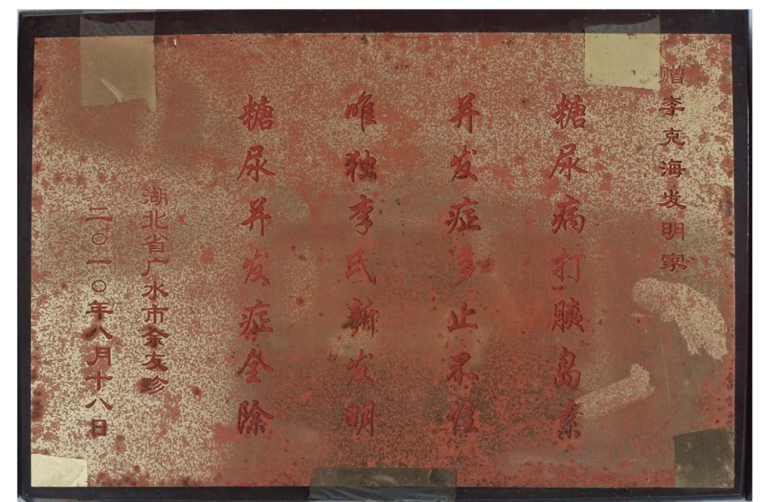 赠李克海发明家
糖尿病打胰岛素
并发症多止不住
唯独李氏新发明
糖尿并发症全除
湖北省广水市余友珍
二〇一〇年八月十八日